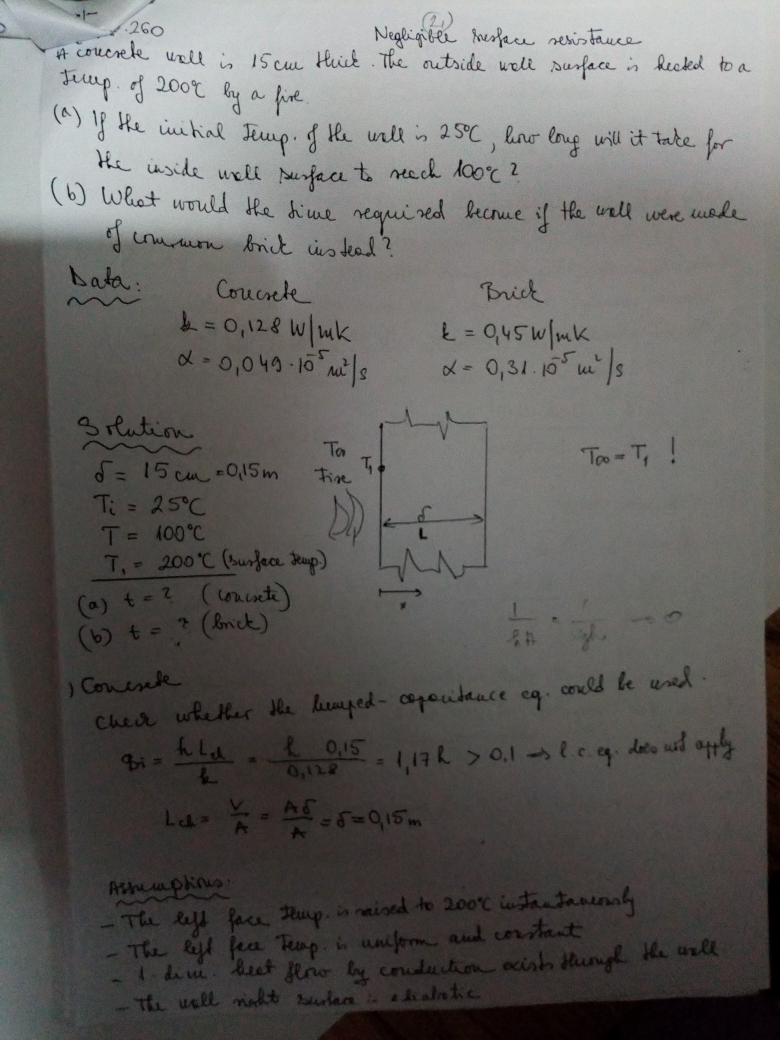 .260
(2.)
Negligible surface resistance
A concrete wall is 15cm thick. The outside wall surface is heated to a
temp. of 200°C by a fire.
(a) If the initial temp. of the wall is 25°C, how long will it take for
the inside wall surface to reach 100°C?
(b) What would the time required become if the wall were made
of common brick instead?
Data: Concrete Brick
k = 0,128 W/mK k = 0,45 W/mK
α = 0,049·10⁻⁵ m²/s α = 0,31·10⁻⁵ m²/s
Solution
δ = 15 cm = 0,15m
Ti = 25°C
T = 100°C
T₁ = 200°C (surface temp)
(a) t = ? (concrete)
(b) t = ? (brick)
T∞
Fire
T₁
δ
L
x
T∞ = T₁ !
1/hA = → 0
) Concrete
Check whether the lumped-capacitance eq. could be used.
Bi = h Lch/k = h 0,15/0,128 = 1,17h > 0.1 → l.c. eq. does not apply
Lch = V/A = Aδ/A = δ = 0,15m
Assumptions:
- The left face temp. is raised to 200°C instantaneously
- The left face temp. is uniform and constant
- 1. dim. heat flow by conduction exists through the wall
- The wall right surface is adiabatic